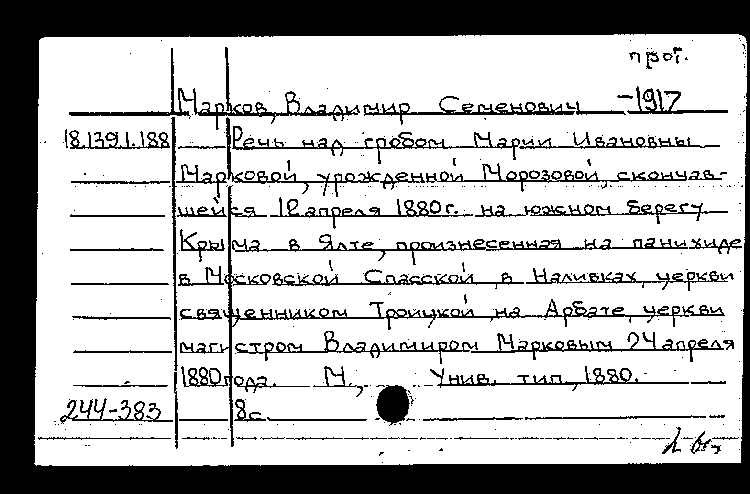 прот.
Марков, Владимир Семенович -1917
18.139.1.188 Речь над гробом Марии Ивановны
Марковой, урожденной Морозовой, скончав-
шейся 12 апреля 1880 г. на южном берегу
Крыма в Ялте, произнесенная на панихиде
в Московской Спасской, в Наливках, церкви
священником Троицкой, на Арбате, церкви
магистром Владимиром Марковым 24 апреля
1880 года. М., Унив. тип., 1880.
244-383 8 с.